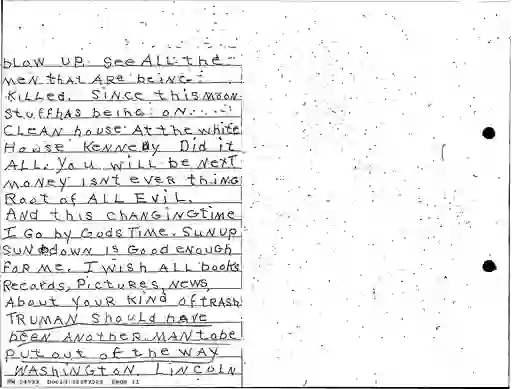 bLOW UP. See ALL the
MEN that ARe beiNG
KILLED. SINCE this MOON
Stuff has being ON.
CLEAN house At the white
House KENNEDY Did it
ALL. You will be NEXT
MONEY ISNt eveR thiNG
Root of ALL EviL.
And this CHANGINGTIME
I Go by Gods TIME. SUNUP
SUNdOWN IS GOOD eNough
FOR ME. I Wish ALL books
Records, Pictures, News,
About YOUR KIND of TRASH
TRUMAN Should have
beeN ANotheR MAN tobe
PUt out of the WAY
WAShiNgtoN, LINCOLN